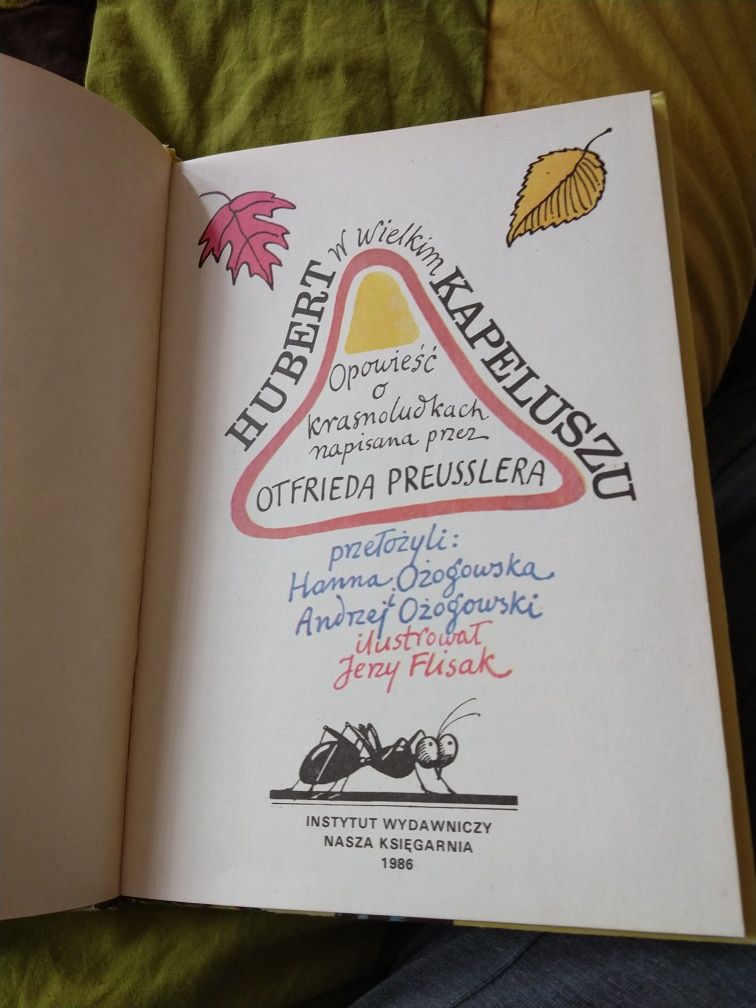 HUBERT w wielkim KAPELUSZU
Opowieść
o
krasnoludkach
napisana przez
OTFRIEDA PREUSSLERA
przełożyli:
Hanna Ożogowska
i
Andrzej Ożogowski
ilustrował
Jerzy Flisak
INSTYTUT WYDAWNICZY
NASZA KSIĘGARNIA
1986